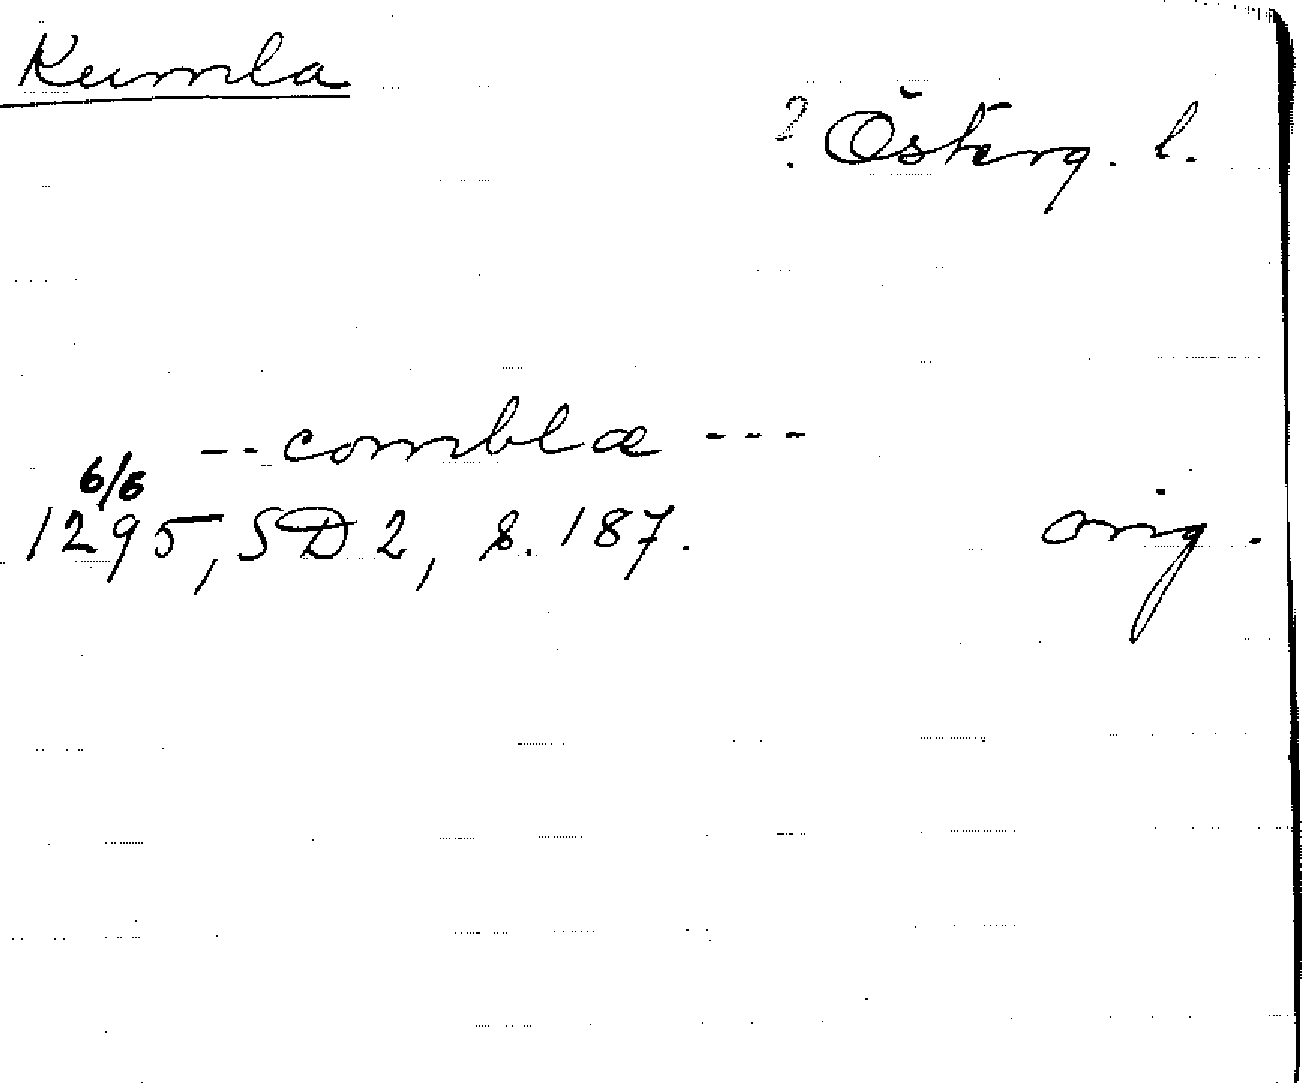 Kumla
? Österg. l.
-- comblæ ---
6/6
1295, SD 2, s. 187. orig.